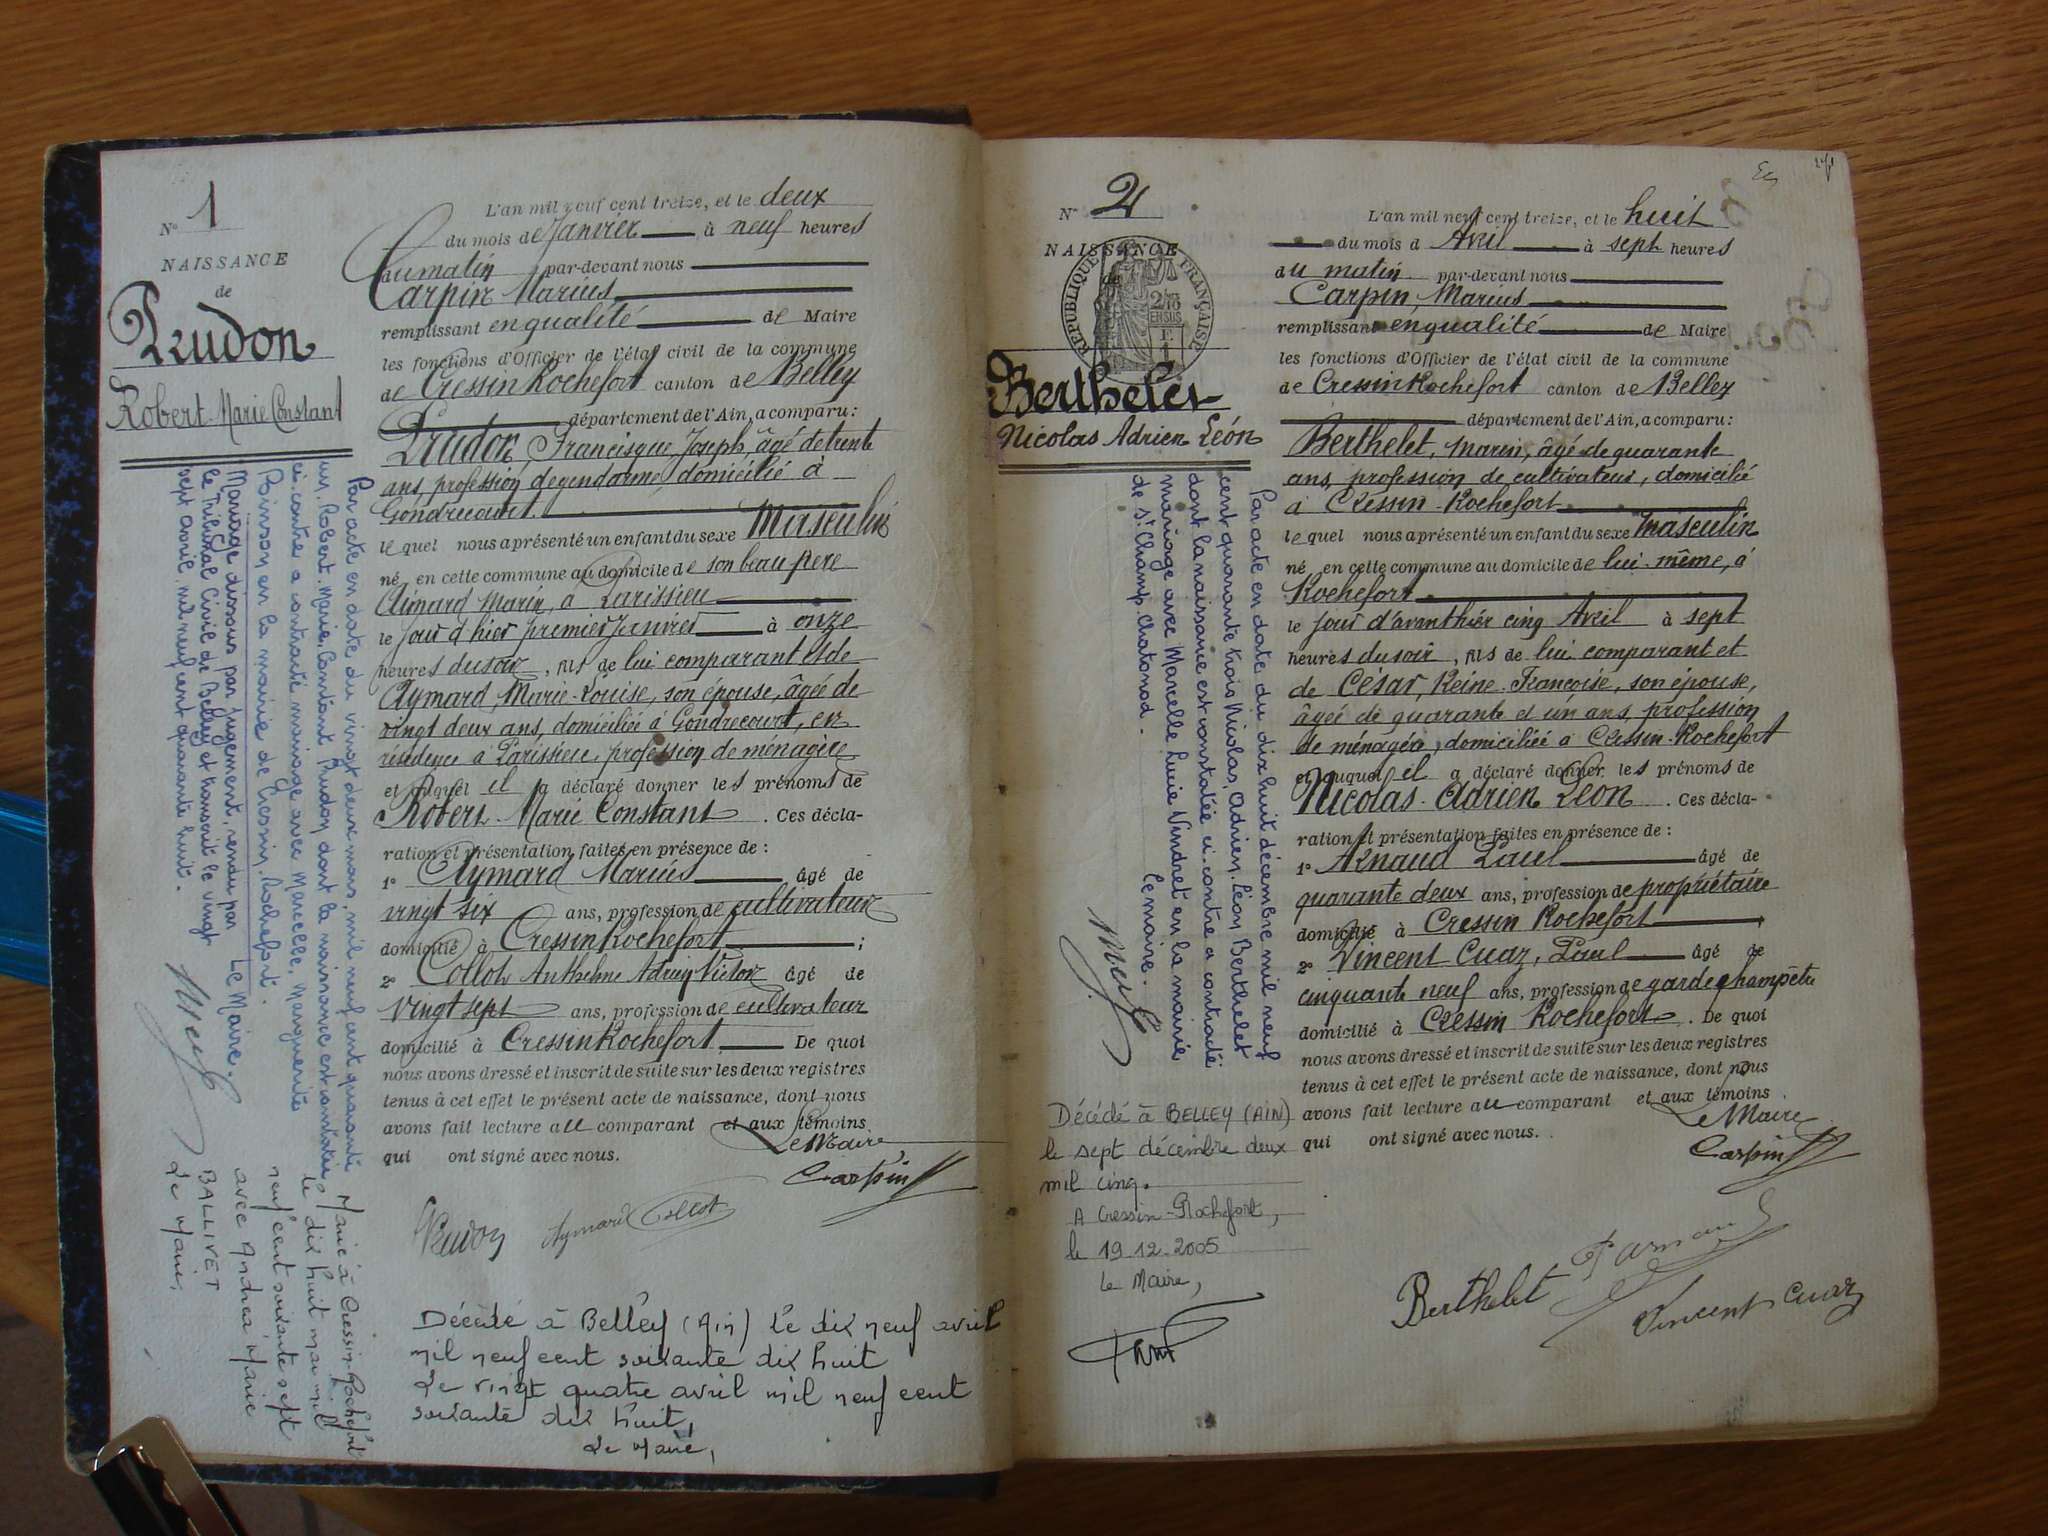 N° 1
NAISSANCE
de
Prudon
Robert Marie Constant
L'an mil neuf cent treize, et le deux
du mois de Janvier à neuf heures
du matin par-devant nous
Carpin Marius
remplissant en qualité de Maire
les fonctions d'Officier de l'état civil de la commune
de Cressin Rochefort canton de Belley
département de l'Ain, a comparu:
Prudon Francisque Joseph, âgé de trente
ans, profession de gendarme, domicilié à
Gondrecourt.
lequel nous a présenté un enfant du sexe Masculin
né en cette commune au domicile de son beau père
Aimard Marin, à Parissieu
le jour d'hier premier Janvier à onze
heures du soir, fils de lui comparant et de
Aymard, Marie-Louise, son épouse, âgée de
vingt deux ans, domiciliée à Gondrecourt, en
résidence à Parissieu, profession de ménagère
et auquel il a déclaré donner les prénoms de
Robert Marie Constant. Ces décla-
ration et présentation faites en présence de :
1° Aymard Marius âgé de
vingt six ans, profession de cultivateur
domicilié à Cressin Rochefort ;
2° Collot Anthelme Adrien Victor âgé de
vingt sept ans, profession de cultivateur
domicilié à Cressin Rochefort. De quoi
nous avons dressé et inscrit de suite sur les deux registres
tenus à cet effet le présent acte de naissance, dont nous
avons fait lecture au comparant et aux témoins
qui ont signé avec nous.
Le Maire
Carpin
Prudon Aymard Collot
Par acte en date du vingt deux mars, mil neuf cent quarante
un, Robert. Marie. Constant Prudon dont la naissance est constatée
ci-contre a contracté mariage avec Marcelle, Marguerite
Poinson en la mairie de Cressin. Rochefort.
Le Maire.
Mariage dissous par jugement, rendu par
le Tribunal Civil de Belley et transcrit le vingt
sept avril, mil neuf cent quarante huit.
Marié à Cressin-Rochefort
le dix huit mai mil
neuf cent soixante sept
avec Andréa Marie
BALLIVET
Le Maire,
Décédé à Belley (Ain) le dix neuf avril
mil neuf cent soixante dix huit
Le vingt quatre avril mil neuf cent
soixante dix huit,
Le Maire,
N° 2
NAISSANCE
de
REPUBLIQUE FRANÇAISE
Berthelet
Nicolas Adrien Léon
L'an mil neuf cent treize, et le huit
du mois d Avril à sept heures
du matin par-devant nous
Carpin, Marius
remplissant en qualité de Maire
les fonctions d'Officier de l'état civil de la commune
de Cressin Rochefort canton de Belley
département de l'Ain, a comparu:
Berthelet, Marin, âgé de quarante
ans, profession de cultivateur, domicilié
à Cressin-Rochefort
lequel nous a présenté un enfant du sexe masculin
né en cette commune au domicile de lui-même, à
Rochefort
le jour d'avanthier cinq Avril à sept
heures du soir, fils de lui comparant et
de César, Reine-Françoise, son épouse,
âgée de quarante et un ans, profession
de ménagère, domiciliée à Cressin-Rochefort
et auquel il a déclaré donner les prénoms de
Nicolas-Adrien Léon. Ces décla-
ration et présentation faites en présence de :
1° Arnaud Paul âgé de
quarante deux ans, profession de propriétaire
domicilié à Cressin Rochefort
2° Vincent Cuaz, Paul âgé de
cinquante neuf ans, profession de garde champêtre
domicilié à Cressin Rochefort. De quoi
nous avons dressé et inscrit de suite sur les deux registres
tenus à cet effet le présent acte de naissance, dont nous
avons fait lecture au comparant et aux témoins
qui ont signé avec nous.
Le Maire
Carpin
Berthelet P Arnaud
Vincent Cuaz
Par acte en date du dix huit décembre mil neuf
cent quarante trois Nicolas, Adrien, Léon Berthelet
dont la naissance est constatée ci-contre a contracté
mariage avec Marcelle Lucie Vindret en la mairie
de St Champ-Chatonod.
Le maire.
Décédé à BELLEY (AIN)
le sept décembre deux
mil cinq.
A Cressin-Rochefort,
le 19.12.2005
Le Maire,